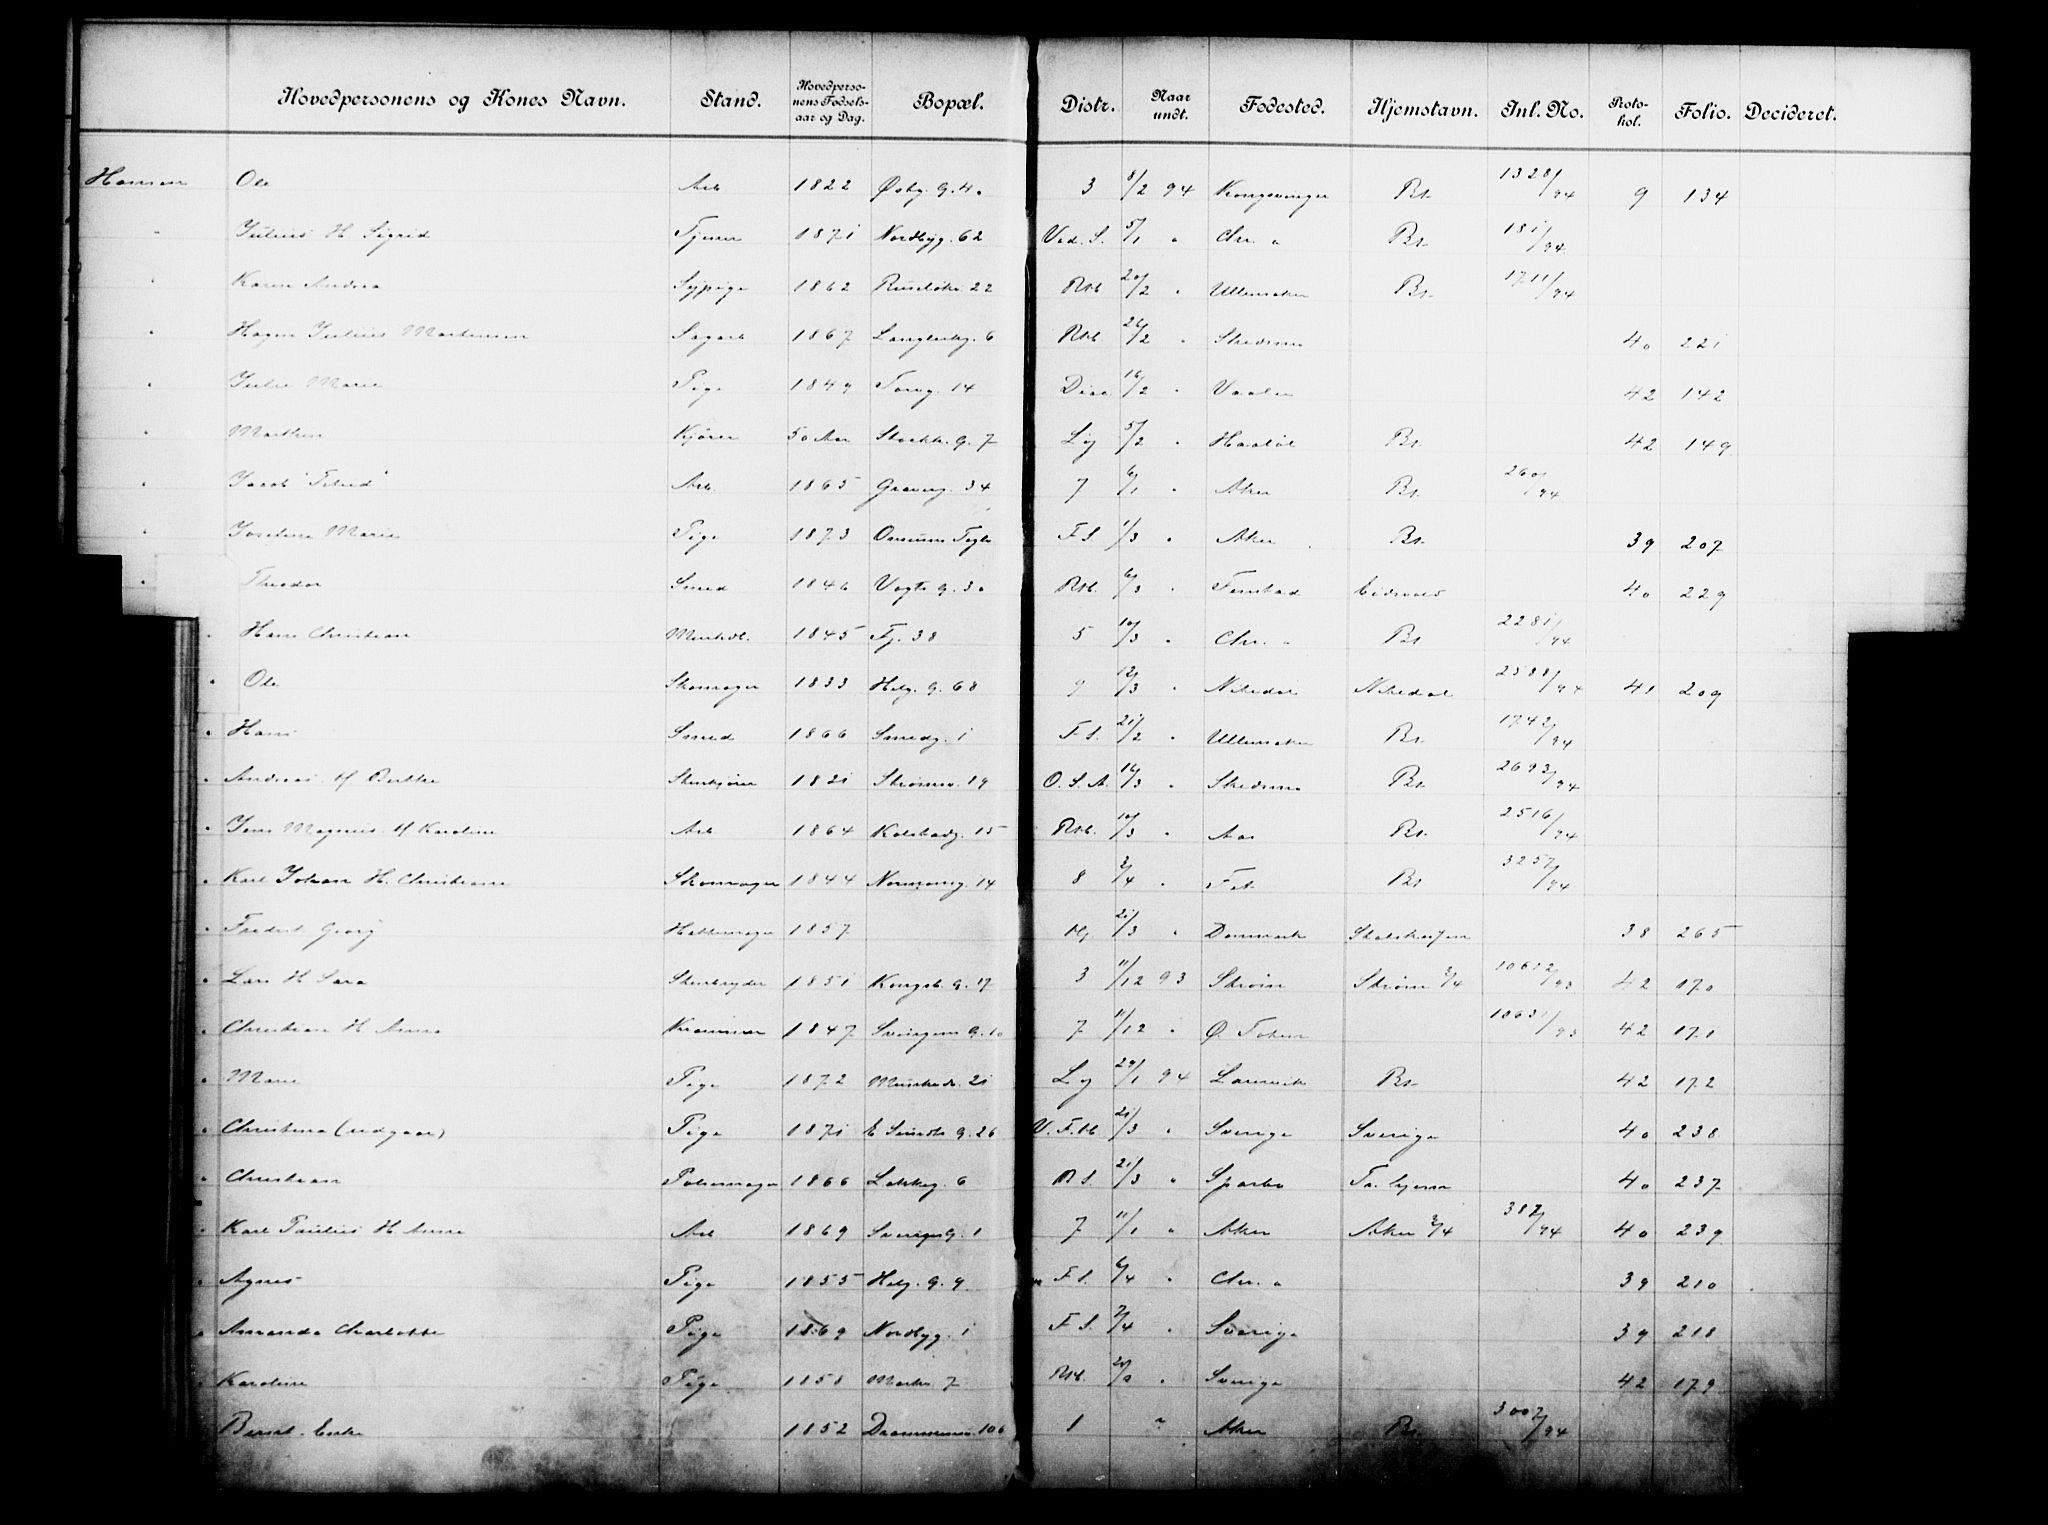 Hovedpersonens og Kones Navn. Stand. Hovedpersonens Fødselsaar og Dag. Bopæl. Distr. Naar undt. Fødested. Hjemstavn. Inl. No. Protokol. Folio. Decideret.
Hansen Ole Arb 1822 Østg. G. 40 3 8/2 94 Kongsvinger Br. 1328/94 9 134
" Julius H Sigrid Tjener 1871 Nordbyg. 62 Vad. S. 5/1 " Chr. a Br. 181/94
" Karen Andrea Sypige 1862 Ruseløkv. 22 Rkb 20/2 " Ullensaker Br. 1711/94
" Hagen Julius Martinsen Sagarb 1867 Langlerkg. 6 Rkb. 26/2 " Skedsmo 40 221
" Julie Marie Pige 1849 Torvg. 14 Diac 16/2 " Vaaler 42 142
" Marthin Kjører 50 Aar Storkk. G. 7 Lg 5/2 " Haabøl Br. 42 149
" Jacob Arb. 1865 Graverg. 34 7 6/1 " Aker Br. 260/94
" Josefine Marie Pige 1873 Omsens Tegl. F.S 1/3 " Aker Br. 39 207
" Theodor Smed 1846 Vogts G. 30 Rkb. 6/3 " Fenstad Eidsvold 40 229
" Hans Christian 1845 Tj. 38 5 10/3 " Chr. a Br. 2281/94
" Ole Skomager 1833 Helg. G. 68 9 12/3 " Nitedal Nitedal 2588/94 41 209
" Hans Smed 1866 Smedg. 1 F.S. 21/2 " Ullensaker Br. 1742/94
" Andreas H Berthe Stenkjører 1821 Strømsv. 19 O. S. A. 16/3 " Skedsmo Br. 2693/94
" Jens Magnus H Karoline Arb 1864 Kolstadg. 15 Rkb. 10/3 " Aas Br. 2516/94
" Karl Johan H. Christiane Skomager 1844 Normansg. 14 8 2/4 " Fet Br 3257/94
" Fredrik Georg Hattemager 1857 21/3 " Danmark 38 265
" Lars H Sara Stenbryder 1851 Kongsb. G. 17 3 11/12 93 Strøm Strøm 3/4 10612/93 42 170
" Christian H Anna 1847 Svingens G. 10 7 11/12 " Ø. Toten 10631/93 42 171
" Marie Pige 1872 Munkedv. 21 Lg 29/1 94 Laurvik Br. 42 172
" Christina (udgaar) Pige 1871 E Sundts G. 26 V. F. Kb. 21/3 " Sverige Sverige 40 238
" Christian Pølsemager 1866 Lakkeg. 6 R S. 21/3 " Sparbo Tr. hjem 40 237
" Karl Paulus H. Anna Arb 1869 Sverigesg. 1 7 11/1 " Aker Aker 3/4 382/94 40 239
" Agnes Pige 1855 Helg. G. 9 F.S. 6/4 " Chr. a 39 210
" Amanda Charlotte Pige 1869 Nordbyg. 1 F.S. 7/4 " Sverige 39 218
" Karoline Pige 1858 Markv. 7 Rkb. " Sverige 42 179
Bernt. Enke 1852 Drammensv. 106 1 " Aker Br. 3002/94